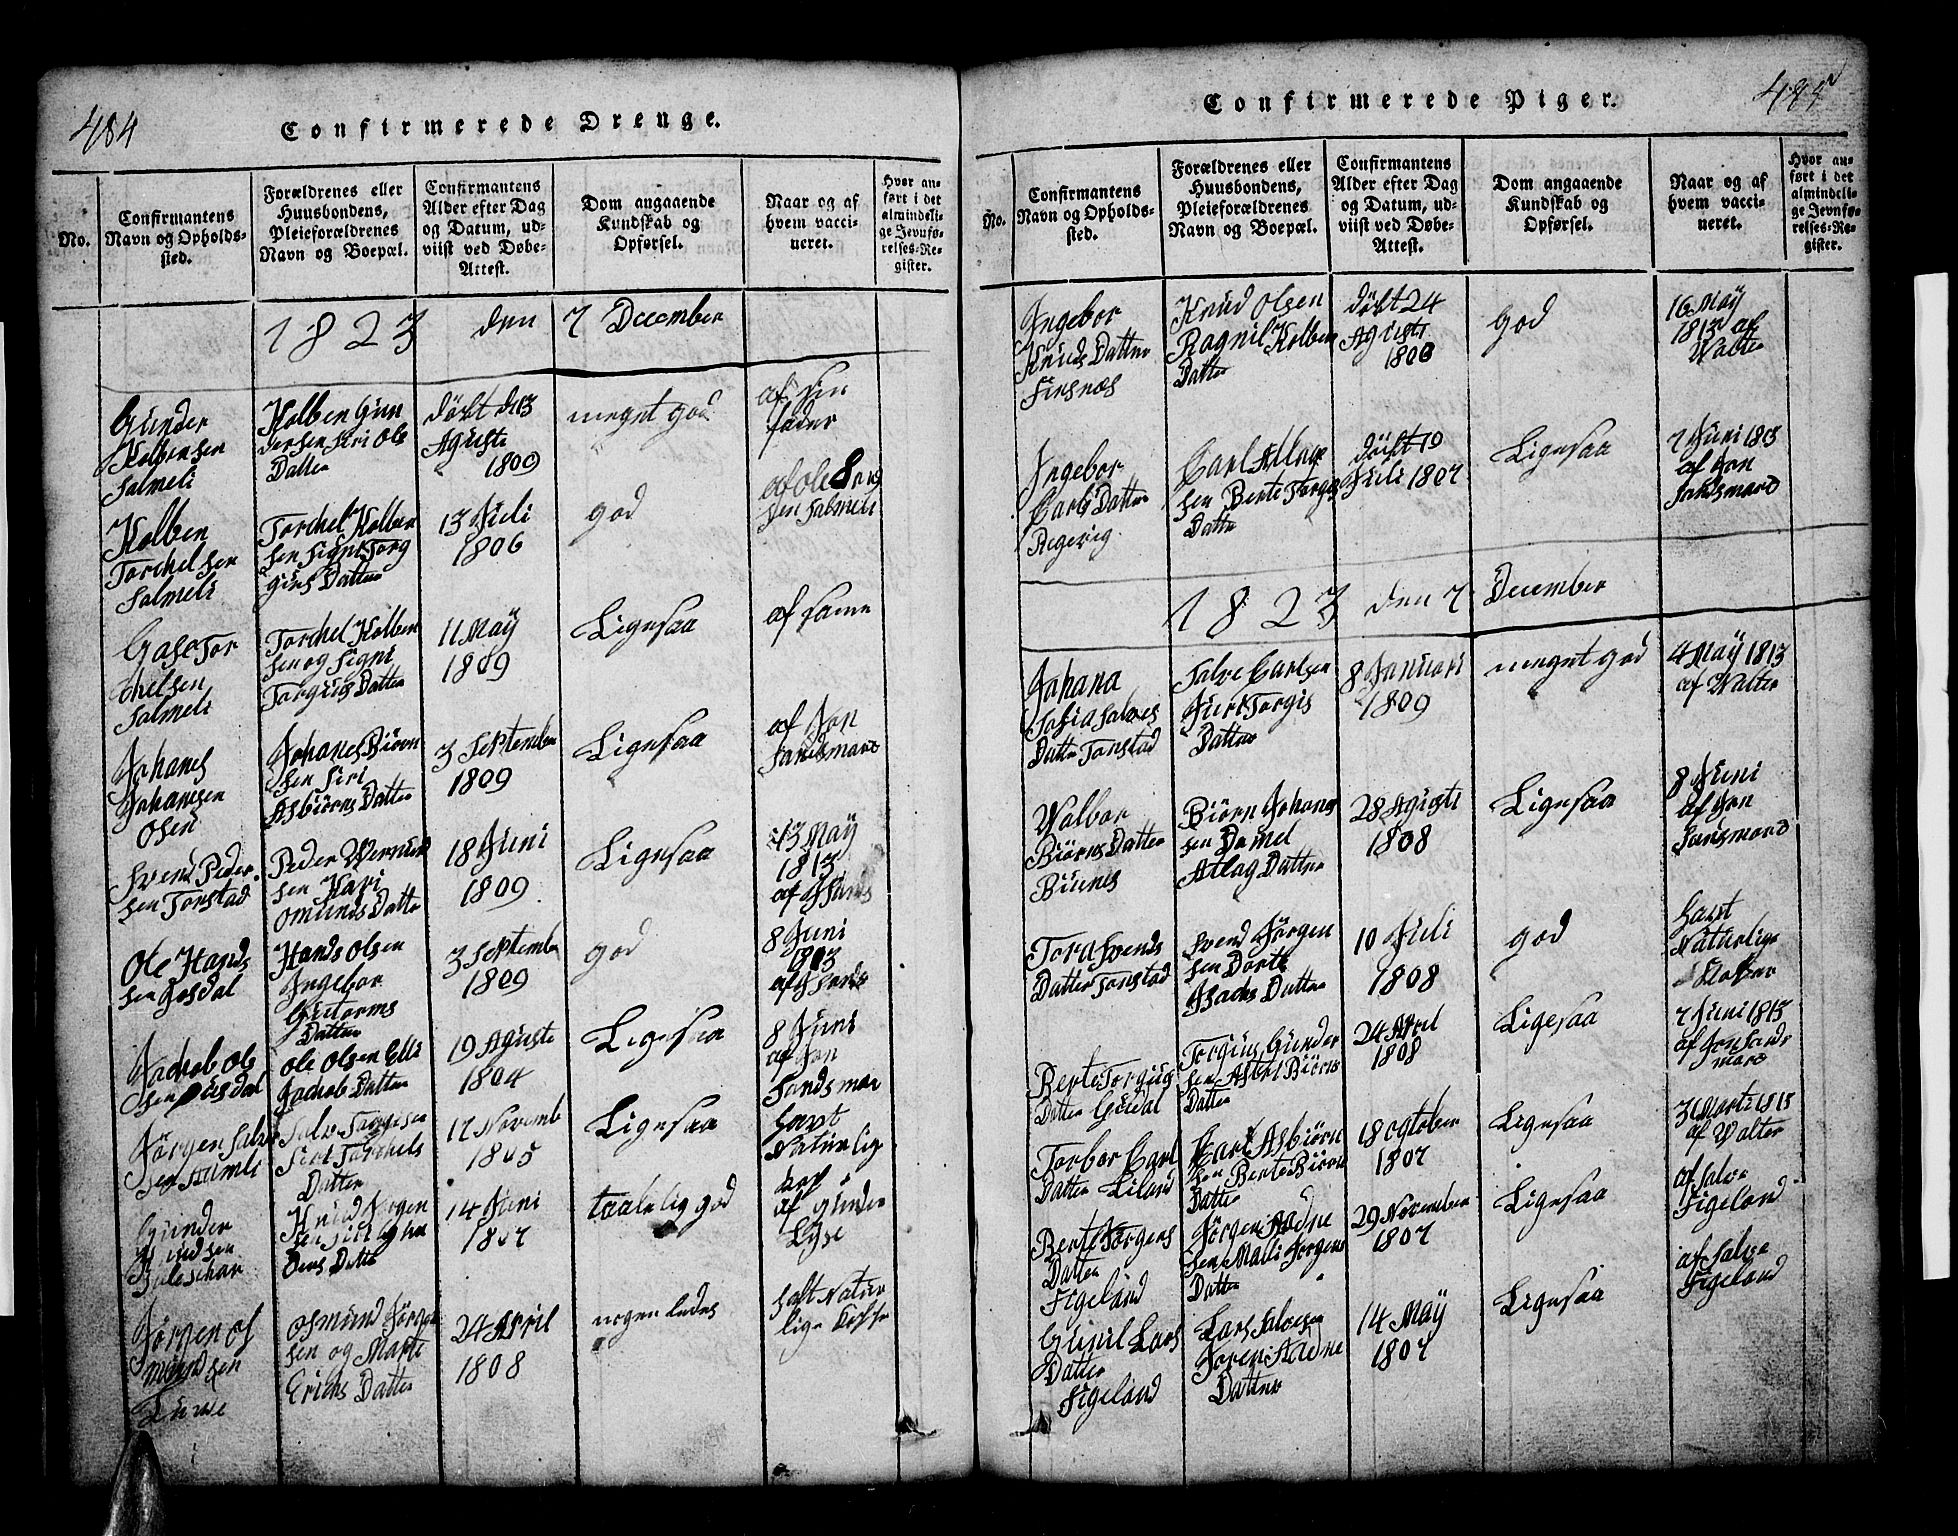 484
Confirmerede Drenge.
No.
Confirmantens
Navn og Opholds-
sted.
Forældrenes eller
Huusbondens,
Pleieforældrenes
Navn og Boepæl.
Confirmantens
Alder efter Dag
og Datum, ud-
viist ved Døbe-
Attest.
Dom angaaende
Kundskab og
Opførsel.
Naar og af
hvem vacci-
neret.
Hvor an-
ført i det
almindeli-
ge Jevnfø-
relses-Re-
gister.
1823 den 7 December
Gunder
Kolbensen
Salmeli
Kolben Gun
dersen Siri Ole
Datter
døbt d 13
Aguste
1809
meget god
af sin
fader
Kolben
Torchelsen
Salmeli
Torchel Kolben
sen Signi Torg
gius Datter
13 Juli
1806
god
af ole
sen Salmeli
Gase Tor
chelsen
Salmeli
Torchel Kolben
sen og Signi
Torgius Datter
11 May
1809
Ligesaa
af same
Johanes
Johanesen
Osen
Johanes Biørn
sen Siri
Asbiørns Datter
3 September
1809
Ligesaa
af Jon
Sandsmard
Svend Peder
sen Tonstad
Peder
sen Kari
Omunds Datter
18 Juni
1809
Ligesaa
13 May
1813
af J Sands
Ole Hands
sen Josdal
Hands Olsen
Ingebor
Gutorms
Datter
3 September
1809
god
8 Juni
1813
af J Sands
Jachob Ol
sen Ousdal
Ole Olsen Elli
Jachob Datter
19 Aguste
1804
Ligesaa
8 Juni
af Jon
Sandsmar
Jørgen Salve
sen Haimli
Salve Torgesen
Siri Torchels
Datter
17 Novemb
1805
Ligesaa
havt
Naturlig
Gunder
Knudsen
Knud Jørgen
sen Siri
Datter
14 Juni
1807
taalelig god
af Gunder
Lyse
Jørgen Os
mundsen
Osmund Jørgen
sen og Marte
Erichs Datter
24 April
1808
nogenledes
haft Natur
lige
485
Confirmerede Piger.
No.
Confirmantens
Navn og Opholds-
sted.
Forældrenes eller
Huusbondens,
Pleieforældrenes
Navn og Boepæl.
Confirmantens
Alder efter Dag
og Datum, ud-
viist ved Døbe-
Attest.
Dom angaaende
Kundskab og
Opførsel.
Naar og af
hvem vacci-
neret.
Hvor an-
ført i det
almindeli-
ge Jevnfø-
relses-Re-
gister.
Ingebor
Knuds Datter
Finsnæs
Knud Olsen
Ragnil Kolben
Datter
døbt 24
Aguste
1808
god
16 May
1813 af
Walter
Ingebor
Carls Datter
Regevig
Carl Atlag
sen Berte Torges
Datter
døbt 19
Juli 1807
Ligesaa
7 Juni 1813
af Jon
Sandsmard
1823 den 7 December
Johana
Sofia Salves
Datter Tonstad
Salve Carlsen
Siri Torgis
Datter
8 Januari
1809
meget god
4 May 1813
af Walter
Walbor
Biørns Datter
Biunes
Biørn Johanes
sen Daniel
Atlag Datter
28 Aguste
1808
Ligesaa
8 Juni
af Jon
Sandsmard
Tora Svends
Datter Tonstad
Svend Jørgen
sen Dorte
Isachs Datter
10 Juli
1808
god
havt
Naturlige
Berte Torgius
Datter Guddal
Torgius Gunder
sen Asbel Biørns
Datter
24 April
1808
Ligesaa
7 Juni 1813
af Jon Sands
mard
Torbor Carl
Datter Eiland
Carl Asbiørn
sen Berte Biørns
Datter
18 October
1807
Ligesaa
3 Marti 1815
af Walter
Berte Jørgens
Datter
Figeland
Jørgen Aadne
sen Malli Jørgens
Datter
29 November
1807
Ligesaa
af Salve
Figeland
Gunil Lars
Datter
Figeland
Lars Salvesen
Joren Aadne
Datter
14 May
1807
Ligesaa
af Salve
Figeland